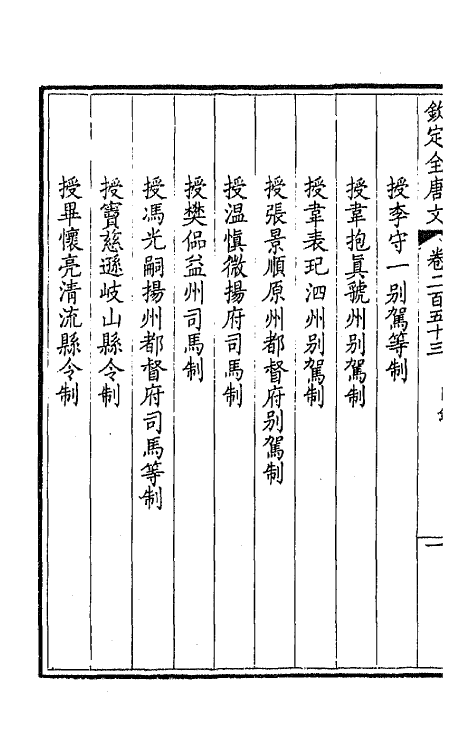 欽定全唐文 卷二百五十三 目錄 一
授李守一别駕等制
授韋抱眞虢州别駕制
授韋表玘泗州别駕制
授張景順原州都督府别駕制
授温慎微揚府司馬制
授樊偘益州司馬制
授馮光嗣揚州都督府司馬等制
授竇慈遜岐山縣令制
授畢懷亮清流縣令制